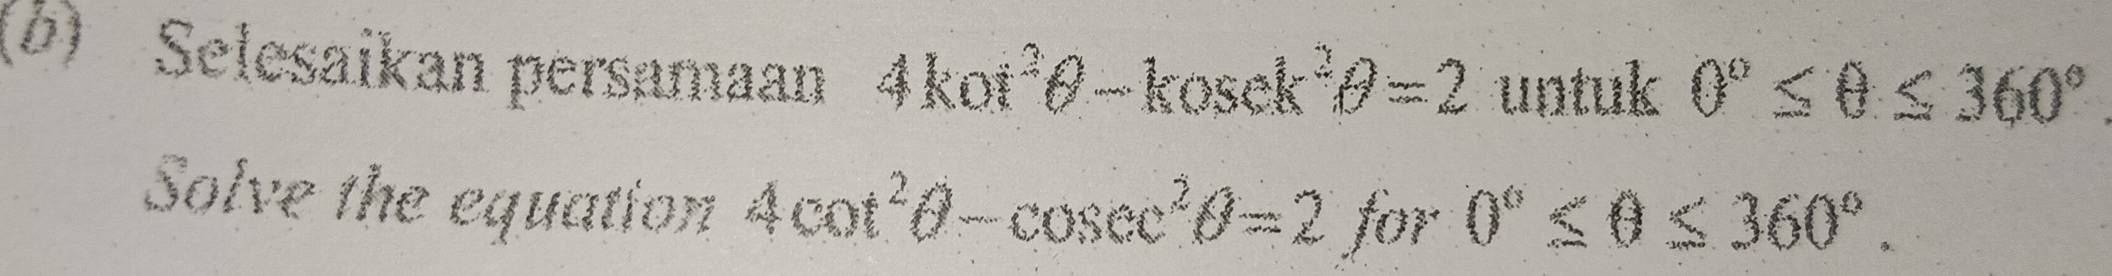 (b) Selesaikan persamaan 4kot²θ–kosek²θ=2 untuk 0° ≤ θ ≤ 360°.
Solve the equation 4cot²θ–cosec²θ=2 for 0° ≤ θ ≤ 360°.